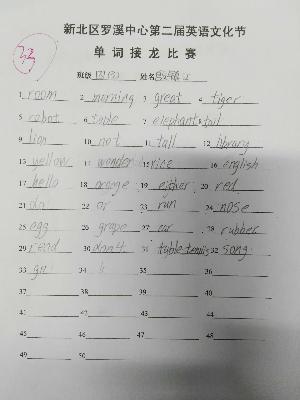 33
新北区罗溪中心第二届英语文化节
单词接龙比赛
班级 姓名
1 room 2 morning 3 great 4 tiger
5 robot 6 table 7 elephant 8 tall
9 lion 10 not 11 tall 12 library
13 yellow 14 wonder 15 rice 16 english
17 hello 18 orange 19 either 20 red
21 do 22 or 23 run 24 nose
25 egg 26 grape 27 ear 28 rubber
29 read 30 don't 31 table tennis 32 song
33 34 35 36
37 38 39 40
41 42 43 44
45 46 47 48
49 50